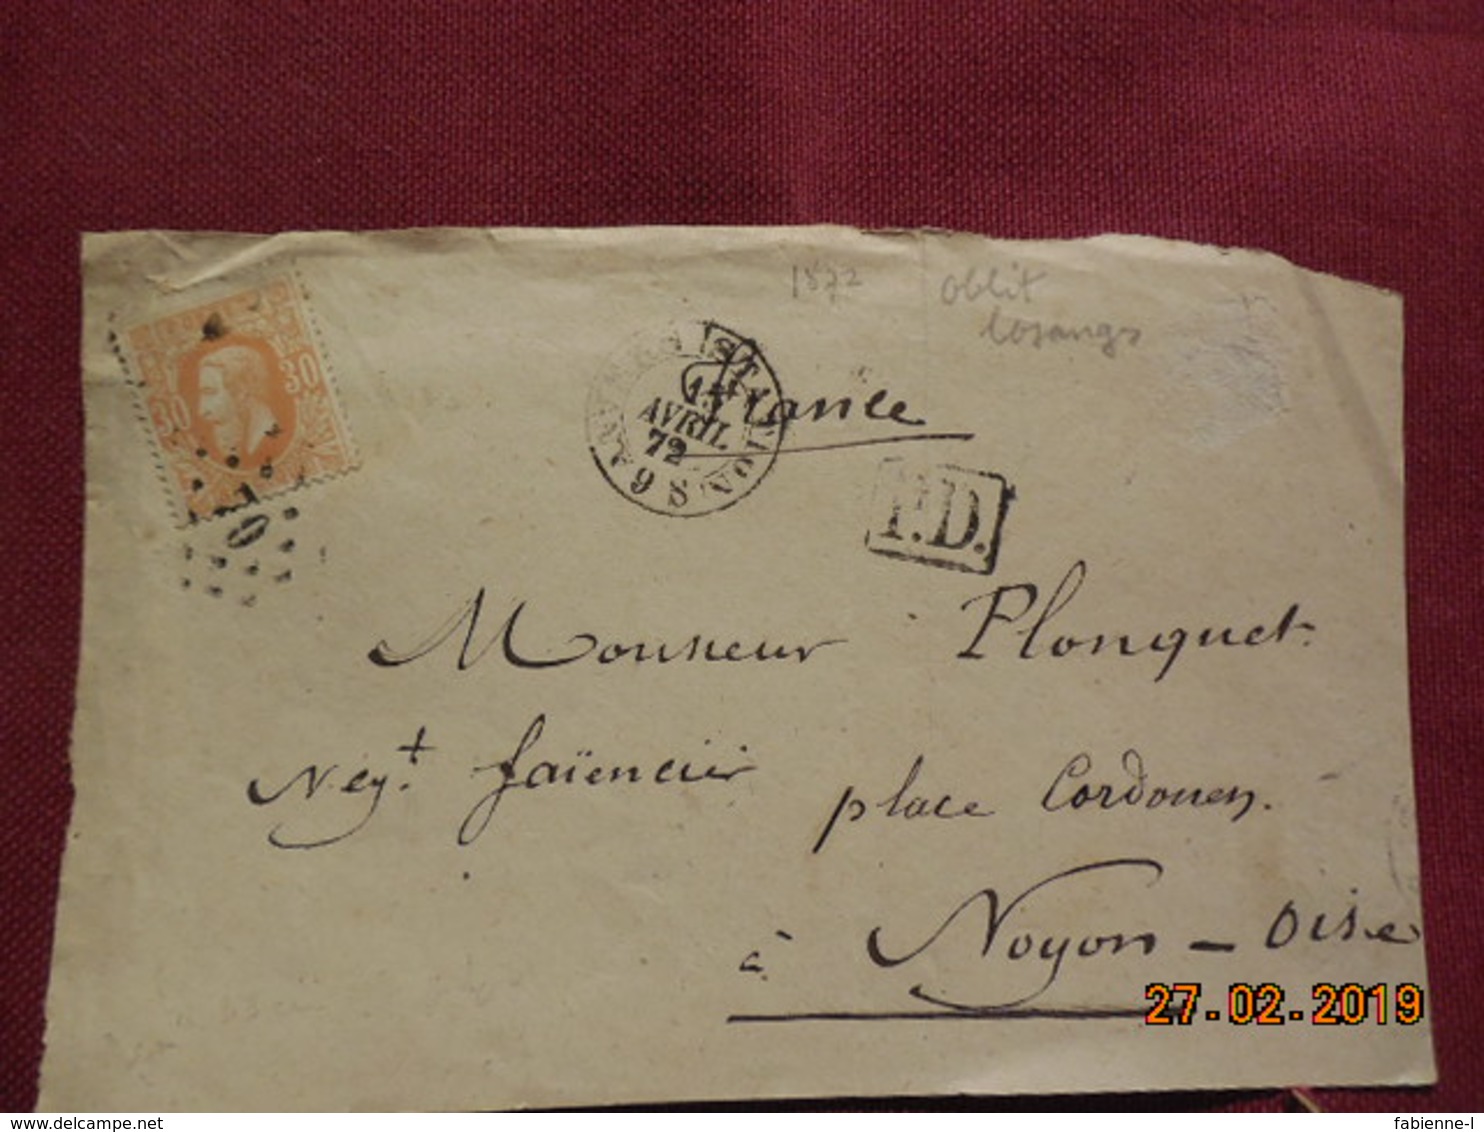 1872
oblit
losangs
30
30
ANVERS (STATION)
15
AVRIL
72
9 S
France
P.D.
Monsieur Plonquet.
Négt. faïencier
place Cordouen.
à Noyon - Oise
27.02.2019
delcampe.net
fabienne-l